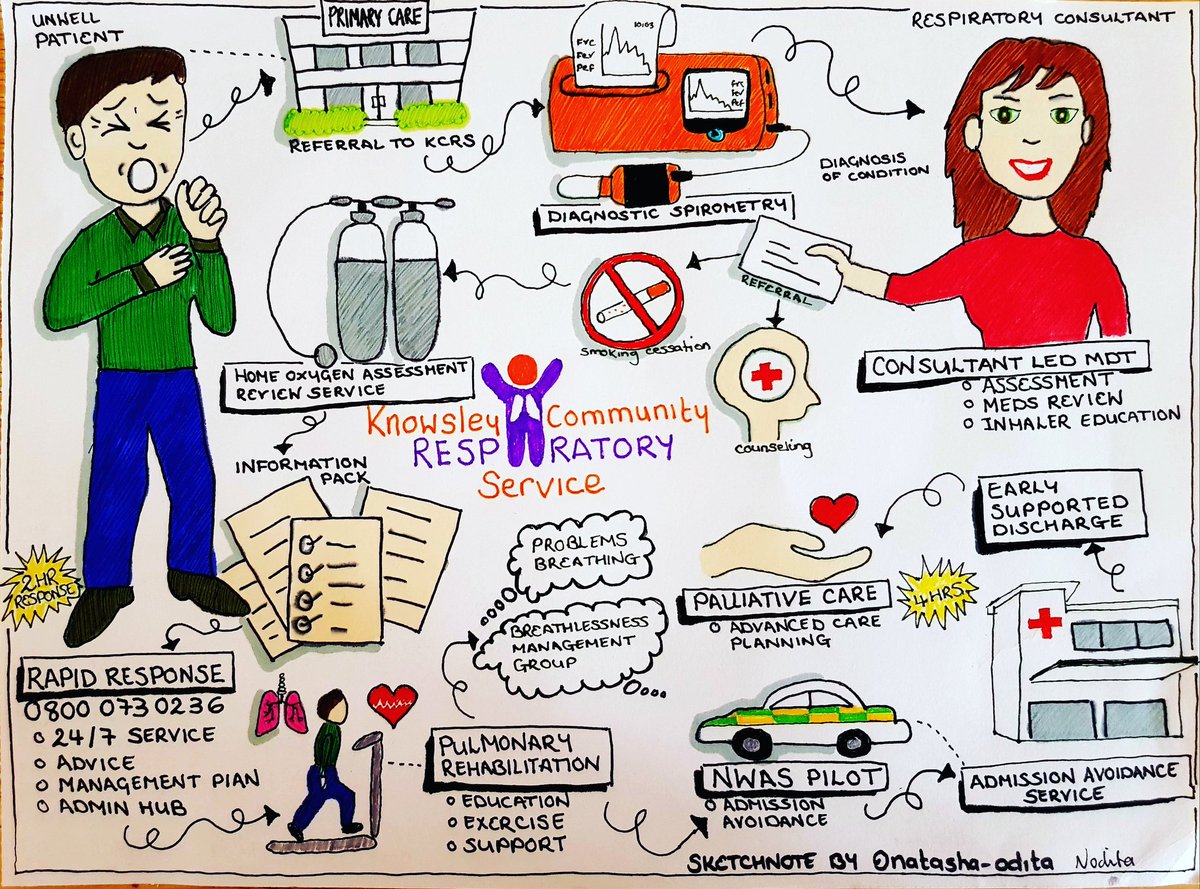 UNWELL
PATIENT
PRIMARY CARE
REFERRAL TO KCRS
10:03
FVC
FEV
PEF
FVC
FEV
PEF
DIAGNOSTIC SPIROMETRY
RESPIRATORY CONSULTANT
DIAGNOSIS
OF CONDITION
REFERRAL
CONSULTANT LED MDT
ASSESSMENT
MEDS REVIEW
INHALER EDUCATION
smoking cessation
counseling
HOME OXYGEN ASSESSMENT
REVIEW SERVICE
Knowsley Community
RESP RATORY
Service
INFORMATION
PACK
2HR
RESPONSE
RAPID RESPONSE
0800 073 0236
24/7 SERVICE
ADVICE
MANAGEMENT PLAN
ADMIN HUB
PULMONARY
REHABILITATION
EDUCATION
EXCRCISE
SUPPORT
PROBLEMS
BREATHING
BREATHLESSNESS
MANAGEMENT
GROUP
NWAS PILOT
ADMISSION
AVOIDANCE
ADMISSION AVOIDANCE
SERVICE
EARLY
SUPPORTED
DISCHARGE
PALLIATIVE CARE
ADVANCED CARE
PLANNING
4HRS
SKETCHNOTE BY @natasha-odita Nodita